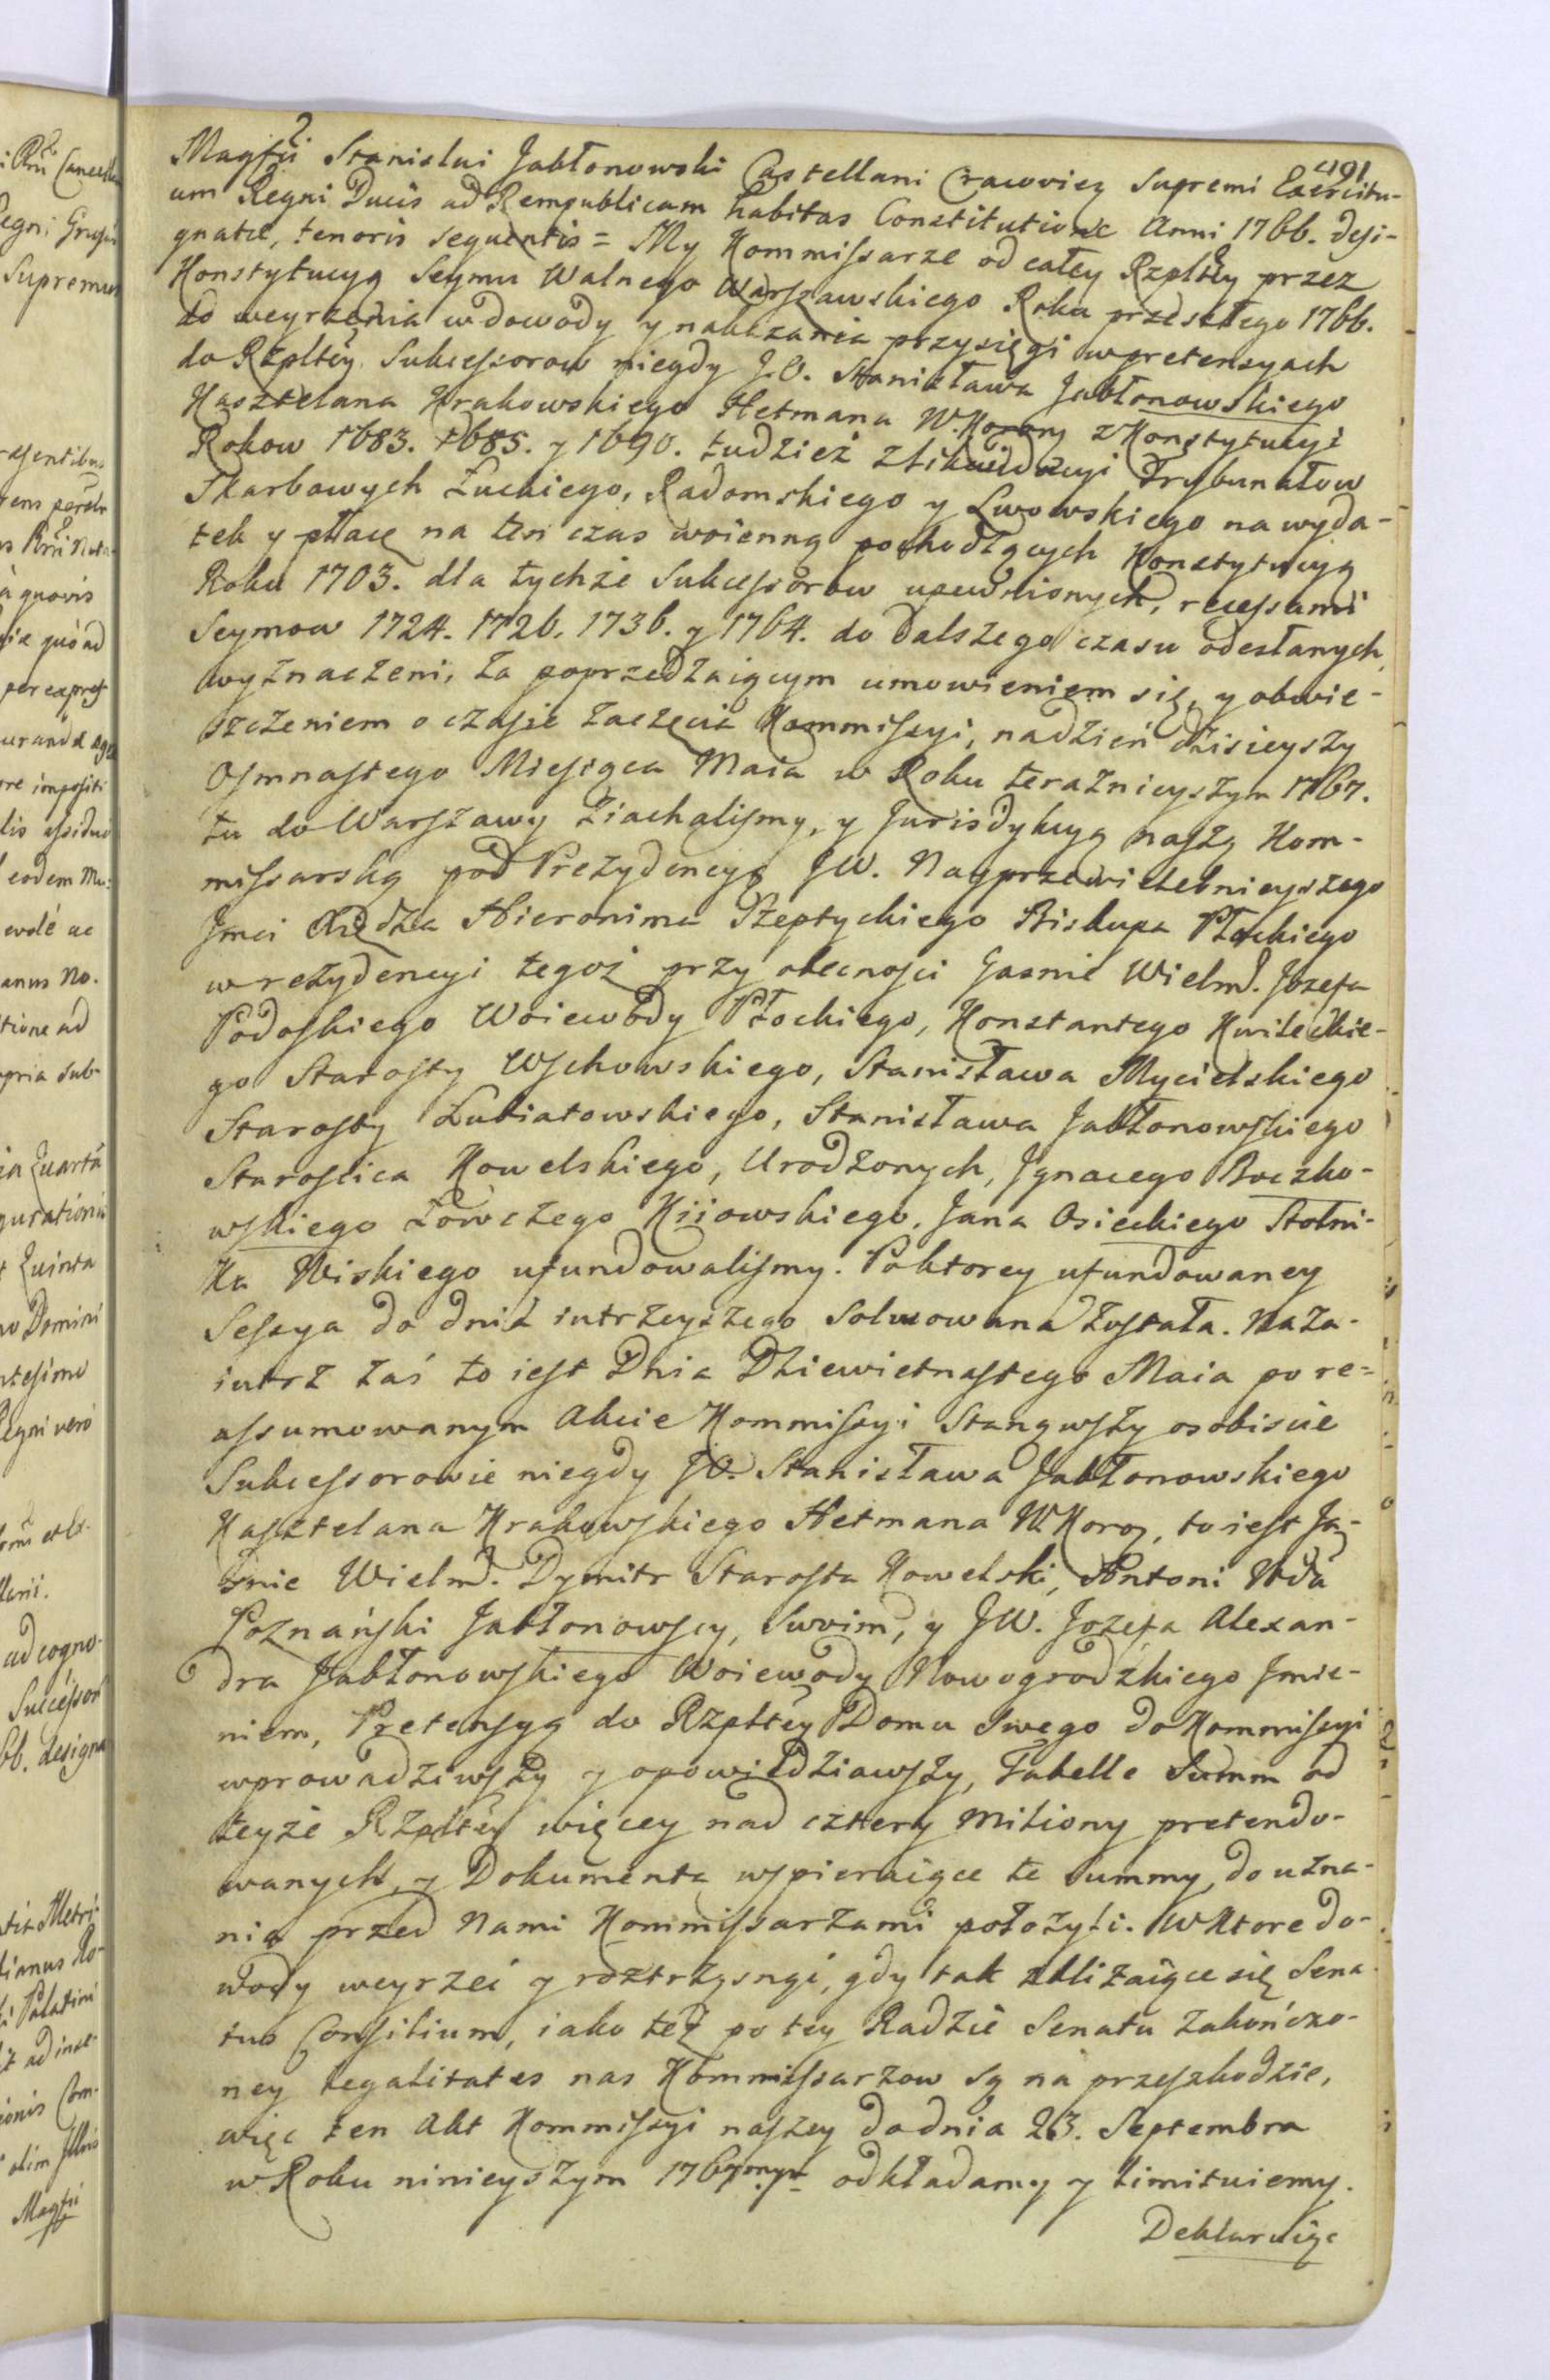 491
Magfci Stanislai Jabłonowski Castellani Cracovien Supremi Exercitu-
um Regni Ducis ad Rempublicam habitas Constitutione Anni 1766. desi-
gnatæ, tenoris sequentis = My Kommissarze od całey Rzpltey przez
Konstytucyą Seymu Walnego Warszawskiego Roku przeszłego 1766.
do weyrzenia w dowody y nakazania przysięgi w pretensyach
do Rzpltey Sukcessorow niegdy J.O. Stanisława Jabłonowskiego
Kasztelana Krakowskiego Hetmana W. Korony z Konstytucyi
Rokow 1683. 1685. y 1690. tudzież z likwidacyi Trybunałow
Skarbowych Łuckiego, Radomskiego y Lwowskiego na wyda-
tek y płacę na ten czas woienną pochodzących Konstytucyą
Roku 1703. dla tychże Sukcessorow upewnionych, recessami
Seymow 1724. 1726. 1736. y 1764. do dalszego czasu odesłanych
wyznaczeni, za poprzedzaiącym umowieniem się, y obwie-
szczeniem o czasie zaczęcia Kommissyi, na dzień dzisieyszy
Osmnastego Miesiąca Maia w Roku teraznieyszym 1767.
tu do Warszawy ziachalismy, y Jurisdykcyą naszą Kom-
missarską pod Prezydencyą JW. Nayprzewielebnieyszego
Jmci Xiędza Hieronima Szeptyckiego Biskupa Płockiego
w rezydencyi tegoż przy obecności Jasnie Wielm. Jozefa
Podoskiego Woiewody Płockiego, Konstantego Kwileckie-
go Starosty Wschowskiego, Stanisława Mycielskiego
Starosty Lubiatowskiego, Stanisława Jabłonowskiego
Starościca Kowelskiego, Urodzonych, Jgnacego Boczko-
wskiego Łowczego Kiiowskiego, Jana Osieckiego Stolni-
ka Wiskiego ufundowalismy. Po ktorey ufundowaney
Sessya do dnia iutrzeyszego Solwowana została. Naza-
iutrz zaś to iest Dnia Dziewietnastego Maia po re-
assumowanym Akcie Kommissyi Stanąwszy osobiscie
Sukcessorowie niegdy JO. Stanisława Jabłonowskiego
Kasztelana Krakowskiego Hetmana W. Koron, to iest Ja-
śnie Wielm. Dymitr Starosta Kowelski, Antoni Wda
Poznański Jabłonowscy, Swoim, y JW. Jozefa Alexan-
dra Jabłonowskiego Woiewody Nowogrodzkiego Jmie-
niem, Pretensyą do Rzpltey Domu Swego do Kommissyi
wprowadziwszy y opowiedziawszy, Tabelle Summ od
teyże Rzpltey więcey nad cztery Miliony pretendo-
wanych, y Dokumenta wspieraiące te Summy, do uzna-
nia przed Nami Kommissarzami położyli. W ktore do-
wody weyrzeć y roztrząsnąć, gdy tak zbliżaiące się Sena-
tus Consilium, iako też po tey Radzie Senatu zakończo-
ney legalitates nas Kommissarzow są na przeszkodzie,
więc ten Akt Kommissyi naszey do dnia 23. Septembra
w Roku ninieyszym 1767mym odkładamy y limituiemy.
Deklaruiąc